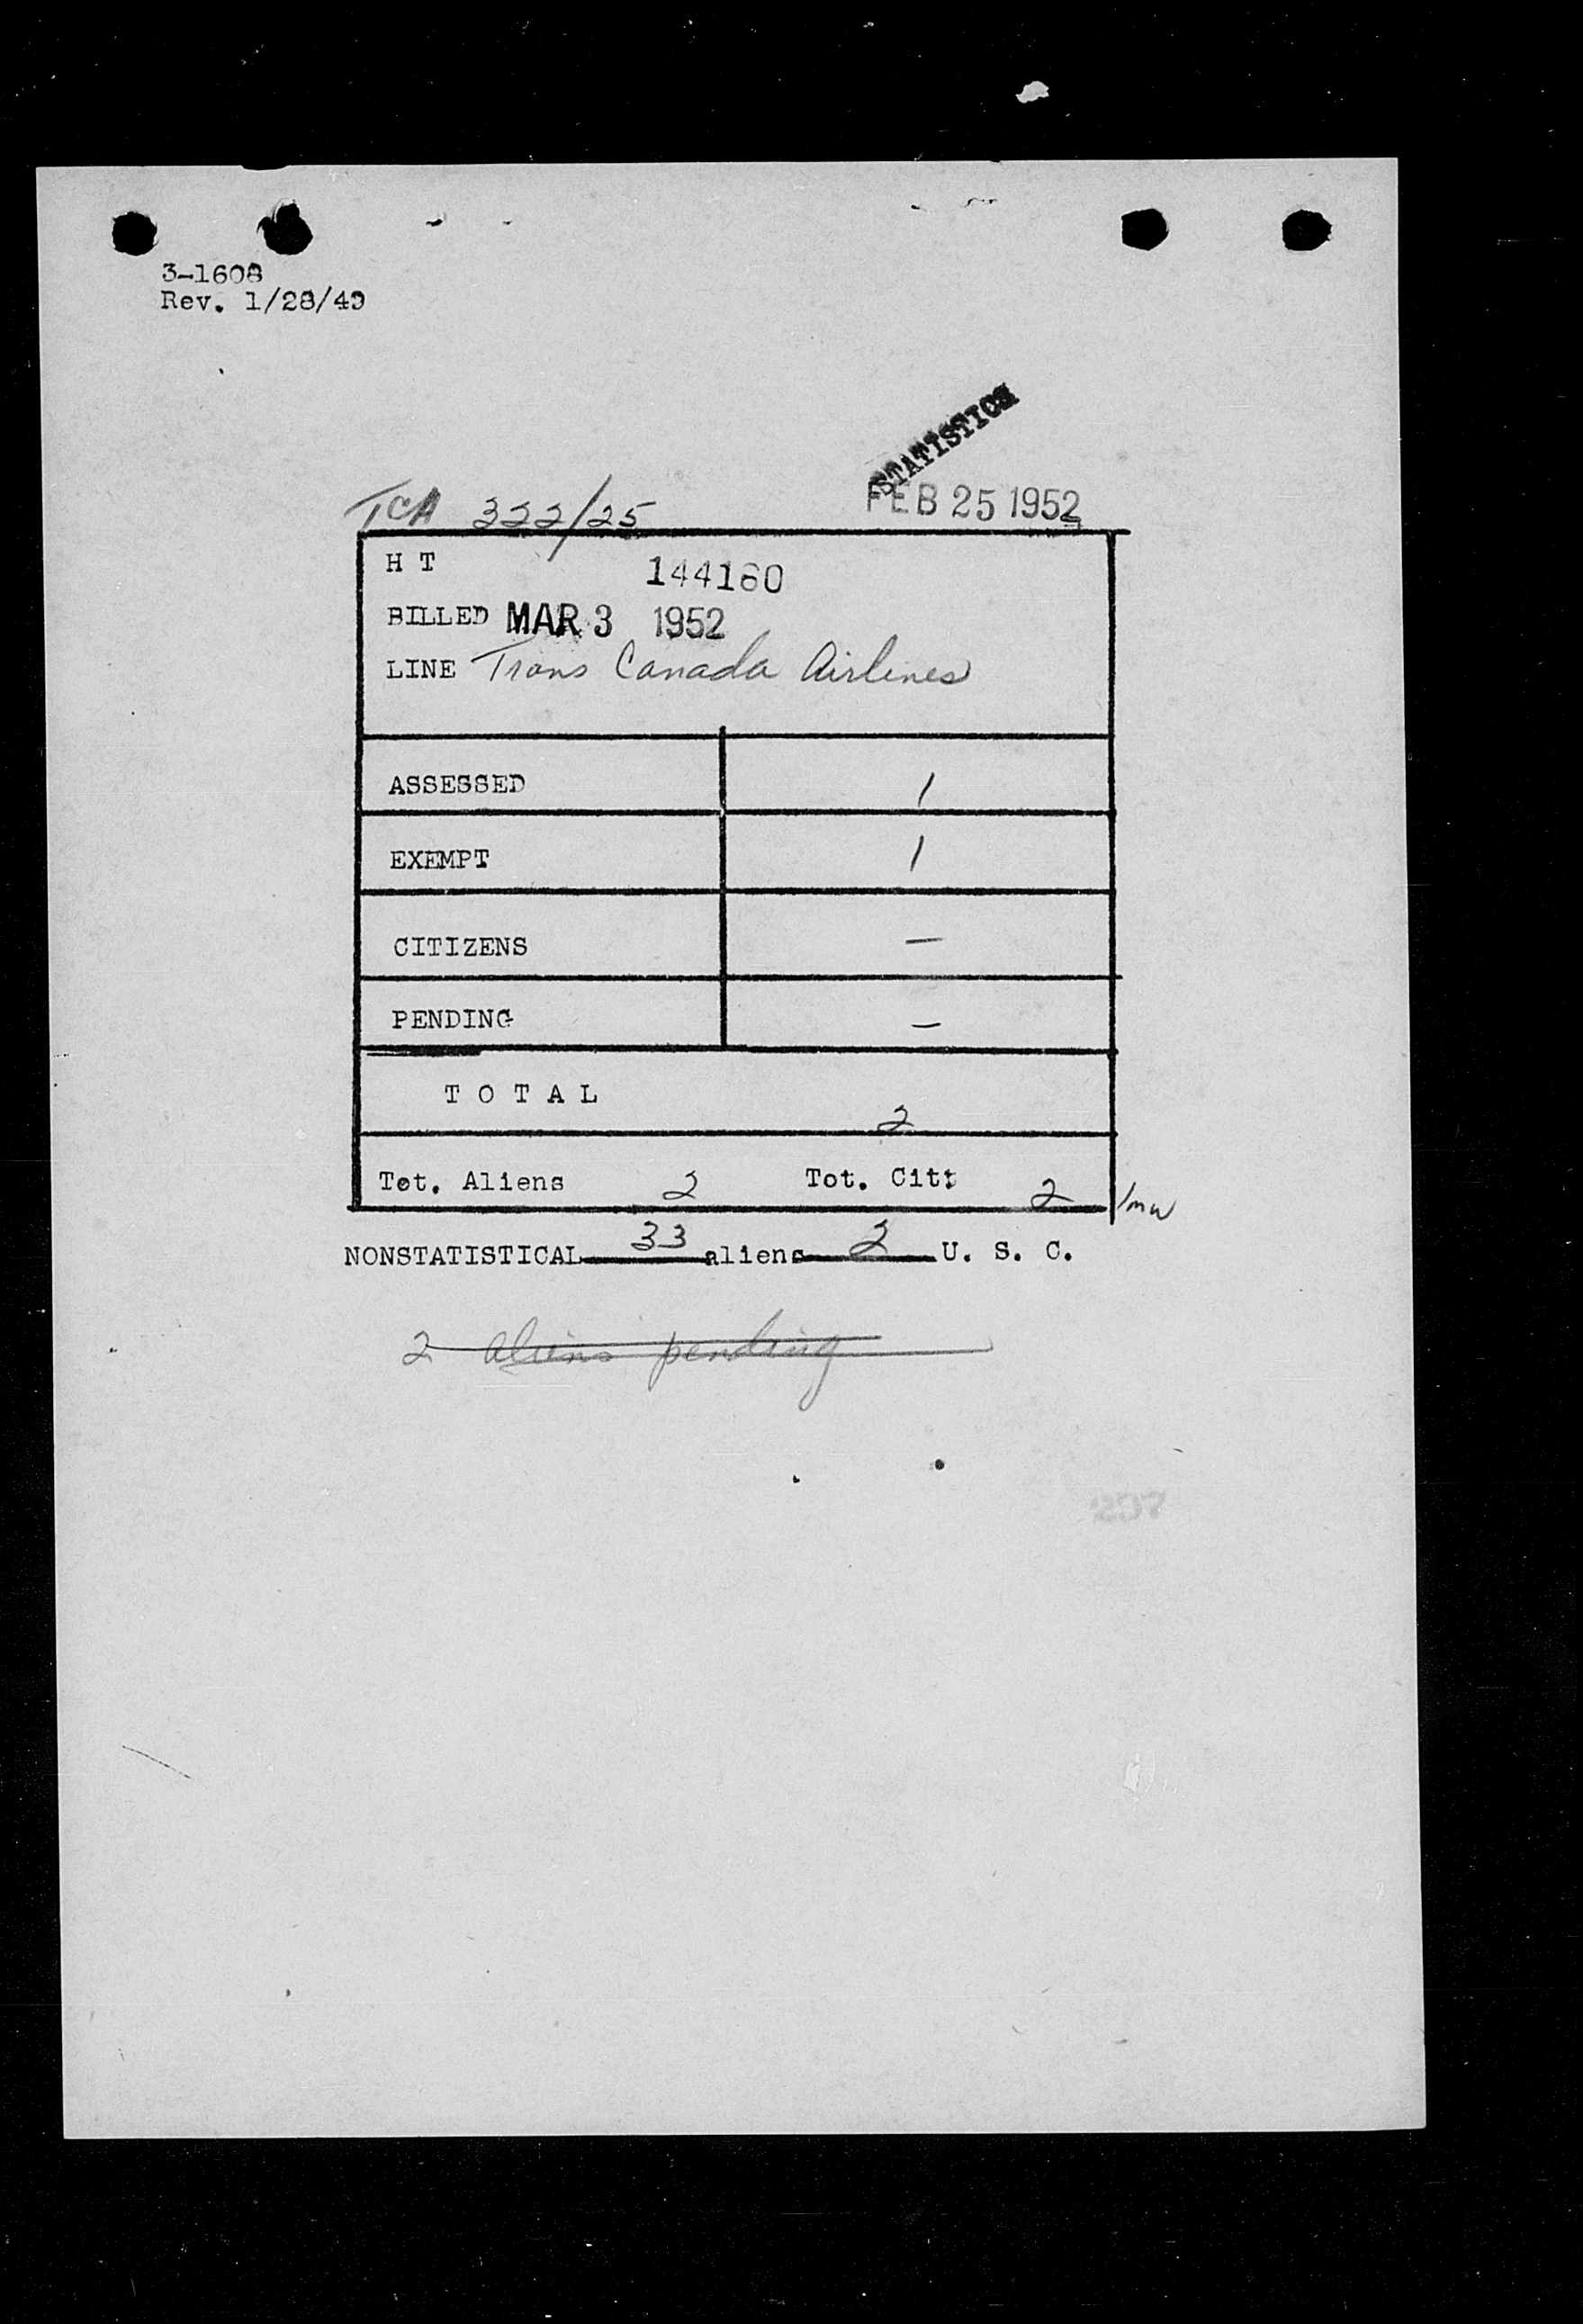 3-1608
Rev. 1/28/49
STATISTICS
TCA 322/25 FEB 25 1952
H T 144160
BILLED MAR 3 1952
LINE Trans Canada Airlines
ASSESSED 1
EXEMPT 1
CITIZENS —
PENDING —
T O T A L 2
Tot. Aliens 2 Tot. Cit: 2 /mw
NONSTATISTICAL 33 aliens 2 U. S. C.
2 aliens pending